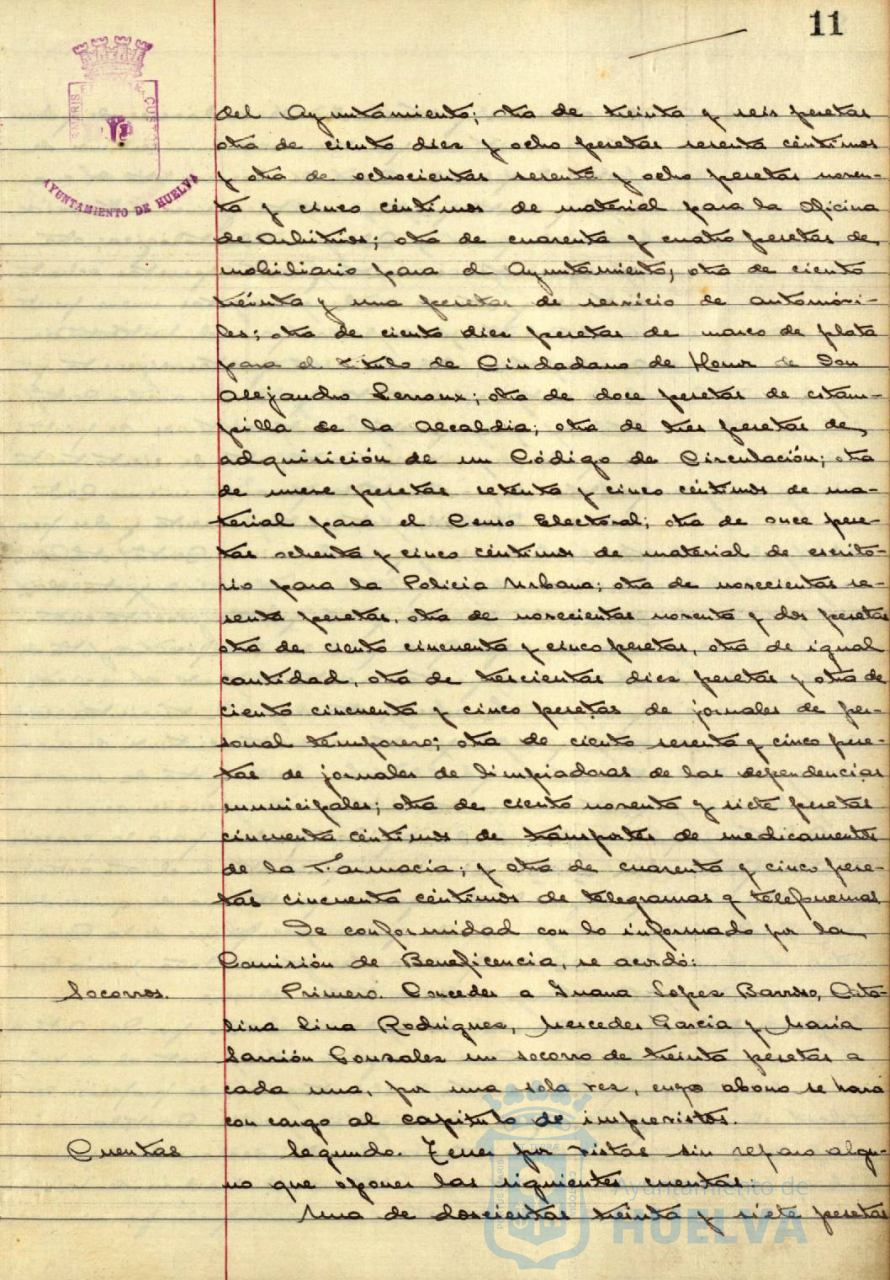 11
AYUNTAMIENTO DE HUELVA
del Ayuntamiento; otra de treinta y seis pesetas
otra de ciento diez y ocho pesetas sesenta céntimos
y otra de ochocientas sesenta y ocho pesetas noven-
ta y cinco céntimos de material para la Oficina
de Arbitrios; otra de cuarenta y cuatro pesetas de
mobiliario para el Ayuntamiento; otra de ciento
treinta y una pesetas de servicio de automóvi-
les; otra de ciento diez pesetas de marco de plata
para el título de Ciudadano de Honor de Don
Alejandro Lerroux; otra de doce pesetas de estam-
pilla de la Alcaldia; otra de tres pesetas de
adquisición de un Código de Circulación; otra
de nueve pesetas setenta y cinco céntimos de ma-
terial para el Censo Electoral; otra de once pese-
tas ochenta y cinco céntimos de material de escrito-
rio para la Policia Urbana; otra de novecientas se-
senta pesetas, otra de novecientas noventa y dos pesetas
otra de ciento cincuenta y cinco pesetas, otra de igual
cantidad, otra de trescientas diez pesetas y otra de
ciento cincuenta y cinco pesetas de jornales de per-
sonal temporero; otra de ciento sesenta y cinco pese-
tas de jornales de limpiadoras de las dependencias
municipales; otra de ciento noventa y siete pesetas
cincuenta céntimos de transportes de medicamentos
de la Farmacia; y otra de cuarenta y cinco pese-
tas cincuenta céntimos de telegramas y telefonemas
De conformidad con lo informado por la
Comisión de Beneficencia, se acordó:
Socorros.
Primero. Conceder a Juana Lopez Barroso,
Lina Rodriguez, Mercedes Garcia y Maria
Sarrión Gonzalez un socorro de treinta pesetas a
cada una, por una sola vez, cuyo abono se hará
con cargo al capitulo de imprevistos.
Cuentas
Segundo. Tener por vistas sin reparo algu-
no que oponer las siguientes cuentas
Una de doscientas treinta y siete pesetas
Ayuntamiento de
HUELVA